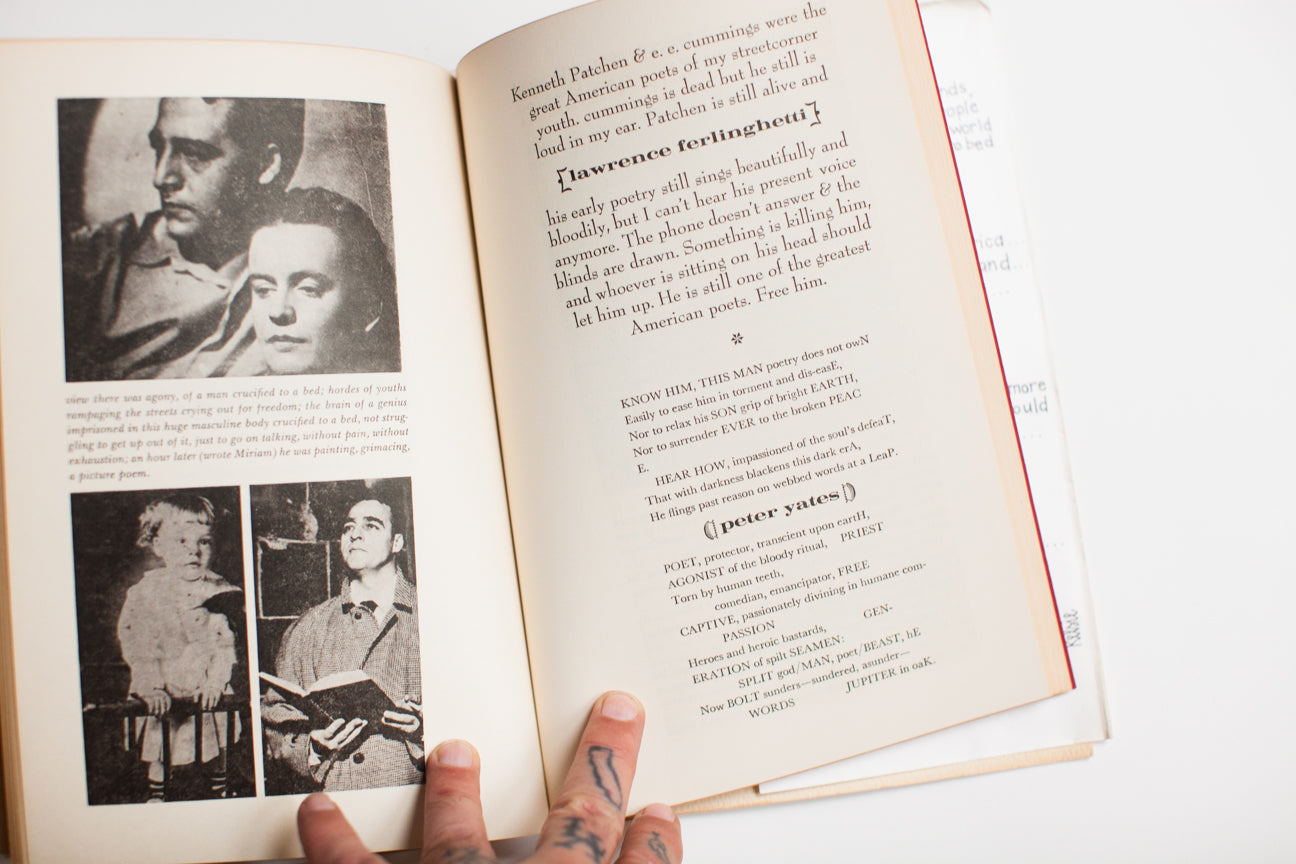 view there was agony, of a man crucified to a bed; hordes of youths
rampaging the streets crying out for freedom; the brain of a genius
imprisoned in this huge masculine body crucified to a bed, not strug-
gling to get up out of it, just to go on talking, without pain, without
exhaustion; an hour later (wrote Miriam) he was painting, grimacing,
a picture poem.
Kenneth Patchen & e. e. cummings were the
great American poets of my streetcorner
youth. cummings is dead but he still is
loud in my ear. Patchen is still alive and
[lawrence ferlinghetti]
his early poetry still sings beautifully and
bloodily, but I can't hear his present voice
anymore. The phone doesn't answer & the
blinds are drawn. Something is killing him,
and whoever is sitting on his head should
let him up. He is still one of the greatest
American poets. Free him.
KNOW HIM, THIS MAN poetry does not owN
Easily to ease him in torment and dis-easE,
Nor to relax his SON grip of bright EARTH,
Nor to surrender EVER to the broken PEAC
E.
HEAR HOW, impassioned of the soul's defeaT,
That with darkness blackens this dark erA,
He flings past reason on webbed words at a LeaP.
(peter yates)
POET, protector, transcient upon eartH,
AGONIST of the bloody ritual, PRIEST
Torn by human teeth,
comedian, emancipator, FREE
CAPTIVE, passionately divining in humane com-
PASSION GEN-
Heroes and heroic bastards,
ERATION of spilt SEAMEN:
SPLIT god/MAN, poet/BEAST, hE
Now BOLT sunders—sundered, asunder—
WORDS JUPITER in oaK.
nds,
ople
world
o bed
ica...
and...
more
ould